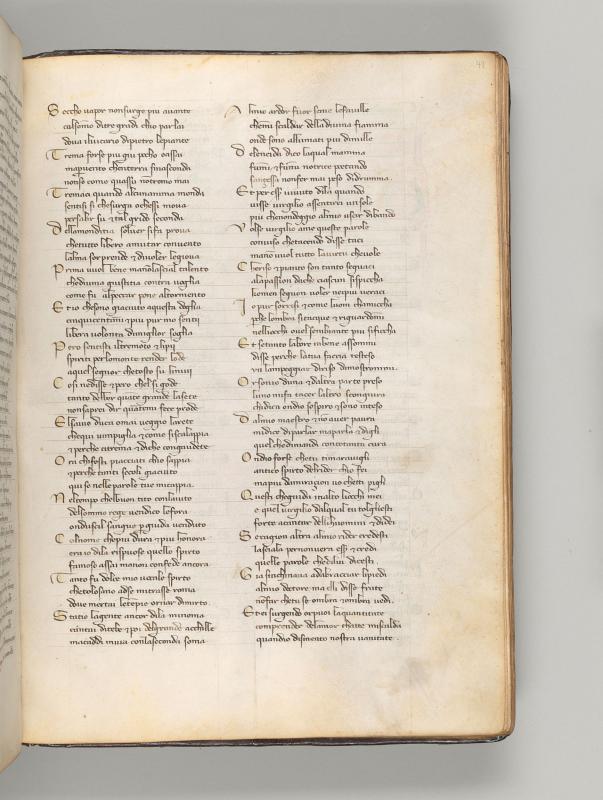 Seccho vapor non surge piu avante
calsomo ditre gradi chio parlai
dova iluicario dipietro lepiante
Trema forse piu giu pocho oassai
mapvento chenterra sinasconda
nonso come quassu nontremo mai
Tremaci quando alchunanima monda
sentesi si chesurga ochessi mova
persalir su et tal grido seconda
Dellamonditia solver si fa prova
chetutto libero amutar convento
lalma sorprende et divoler legiova
Prima vuol bene manollascial talento
chedivina giustitia contra voglia
come fu alpeccar pone altormento
Et io chesono giaciuto aquesta doglia
cinquicentanni et piu pur mo senti
libera volonta dimiglior soglia
Pero sentisti iltremoto et lipii
spiriti perlomonte render lode
aquel segnor chetosto su linvii
Cosi nedisse et pero chel si gode
tanto delber quate grande lasete
nonsaprei dir quantemi fece prode
El savio duca omai veggio larete
chequi vimpiglia et come siscalappia
et perche citrema et diche congaudete
Ora chifosti piacciati chio sappia
et perche tanti secoli giaciuto
qui se nelle parole tue micappia
Nel tempo chelbuon tito conlaiuto
delsommo rege vendico lefora
ondusci il sangue pgiuda venduto
Colnome chepiu dura et piu honora
era io dila rispuose quello spirto
famoso assai manon confede ancora
Tanto fu dolce mio vocale spirto
chetolosano adse mitrasse roma
dove mertai letempie ornar dimirto
Statio lagente ancor dila minoma
cantai dithebe et poi delgrande acchille
macaddi invia conlaseconda soma
Almio ardor fuor seme lefaville
chemi scaldar delladivina fiamma
onde sono allumati piu dimille
Delleneida dico laqual mamma
fumi et fumi nutrice poetando
sanzessa nonfermai peso didramma
Et per esser vivuto dila quando
visse virgilio assentirei unsole
piu chenondeggio almio uscir dibando
Volse virgilio ame queste parole
conviso chetacendo disse taci
manon puol tutto lavirtu chevole
Cheriso et pianto son tanto seguaci
alapassion diche ciascun sispiccha
kemen seguon voler nepiu veraci
Io pur sorrisi et come luom chamiccha
pche lombra sitacque et riguardomi
nellocchi ovel sembiante piu sificcha
Et setanto labore inbene assommi
disse perche latua faccia testeso
un lampeggiar diriso dimostrommi
Or sonio duna et daltra parte preso
luna mifa tacer laltra scongiura
chidica ondio sospiro et sono inteso
Dalmio maestro et non aver paura
midice diparlar maparla et digli
quel chedimanda contotanta cura
Ondio forse chetu timaravigli
antico spirto delrider chio fei
mapiu damiraçion vo chetti pigli
Questi cheguida inalto liocchi mei
e quel virgilio dalqual tu togliesti
forte acantar dellihuomini et didei
Se cagion altra almio rider credesti
lasciala pernonvera esser et credi
quelle parole chedilui dicesti
Gia sinchinava adabracciar lipiedi
almio dottore ma elli disse frate
nonfar chetu se ombra et ombra vedi
Et ei surgendo orpuoi laquantitate
comprender delamor chatte miscalda
quandio dismento nostra vanitate